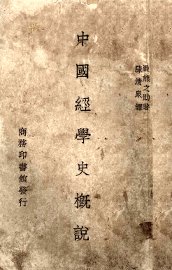 瀧熊之助著
陳清泉譯
中國經學史概說
商務印書館發行